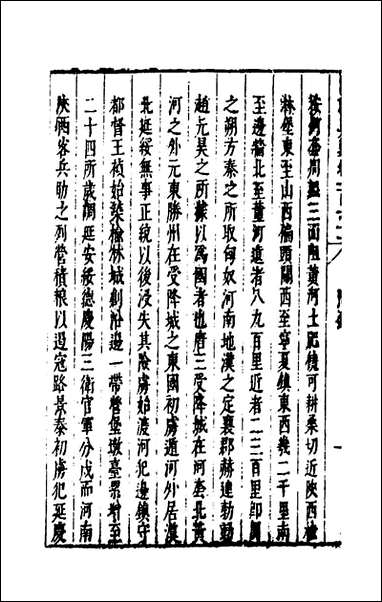 按河套周迴三面阻黃河土肥饒可耕桑切近陝西榆
林堡東至山西偏頭關西至寧夏鎮東西幾二千里南
至邊牆北至黃河遠者八九百里近者二三百里即周
之朔方秦之所取匈奴河南地漢之定襄郡赫連勃勃
趙元昊之所據以為國者也唐三受降城在河套北黃
河之外元東勝州在受降城之東國初虜遁河外居漠
北延綏無事正統以後浸失其險虜始渡河犯邊鎮守
都督王禎始築榆林城創沿邊一帶營堡墩臺累增至
二十四所歲調延安綏德慶陽三衛官軍分戍而河南
陝西客兵助之列營積粮以遏冦路景泰初虜犯延慶